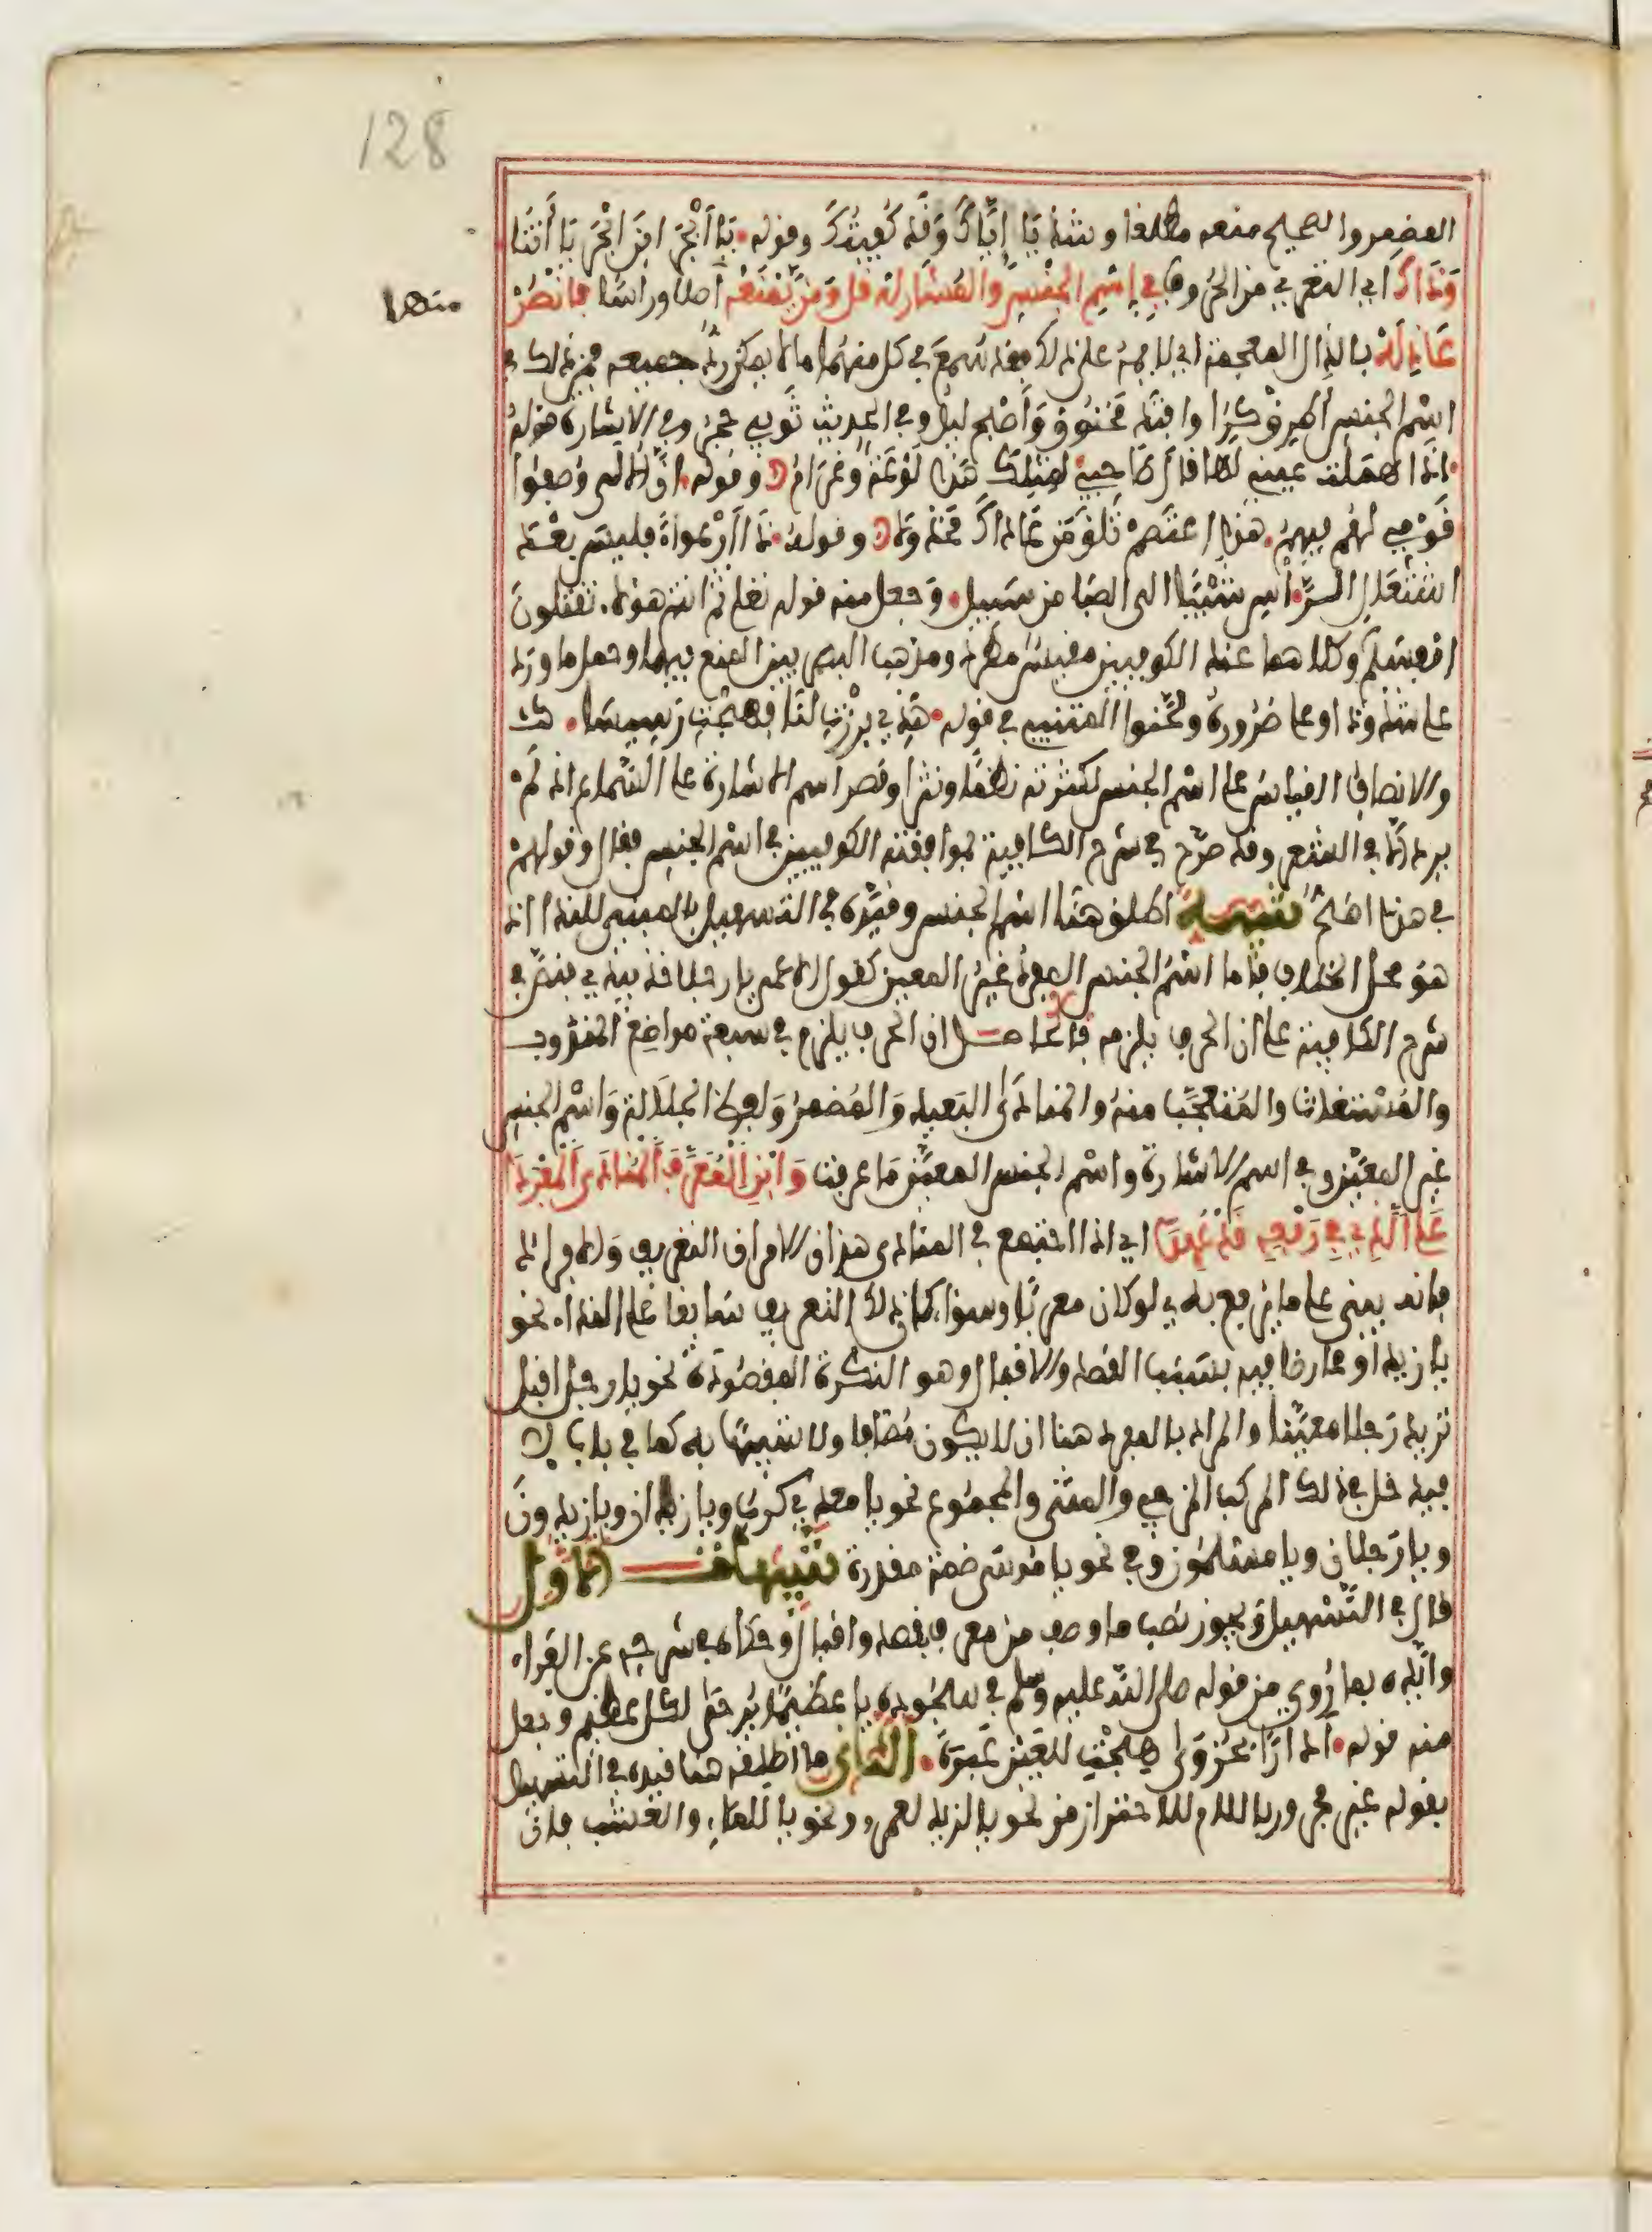 128
المضمر والصحيح منعه مطلقا وشذ يَا إِيَّاكَ وَقَد كُفِيتُكَ وقوله يَا أَبْجَرَ ابنَ أَبْجَرَ يَا أَنْتَا
وَذَاكَ اي التعري من الحروف فِي إِسْمِ الجِنْسِ وَالمُشَارِ لَهُ قَلَّ وَمَن يَمْنَعْهُ أصلا وراسا فَانْصُرْ
منهما
عَاذِلَهْ بالذال المعجمة اي لايمه على ذلك فقد سُمِعَ في كل منهما ما لا يمكن ردّ جميعه فمن ذلك في
اسْم الجنس أَطْرِقْ كَرَا وافتَدِ مَخْنُوقُ وَأَصْبِحْ ليلُ وفي الحديث ثَوبي حَجَرُ وفي الاشارة قوله
اذَا هَمَلَت عيني لها قال صَاحِبي بمثلِكَ هَذَا لَوْعَةٌ وغَرَامُ وقوله انَّ الألى وُصِفُوا
قَوْمِي لهُم فبِهِمْ هَذَا اعتَصِمْ تَلْقَ مَن عَادَاكَ مَخْذُولا وقوله ذَا ارْعِوَاءً فليس بعْدَ
اشْتِعَالِ الرَّاسِ شَيْبًا الى الصبَا من سَبيل وَجعل منه قوله تعلى ثم انتم هؤلاء تقتلون
انفسكم وكلاهما عند الكوفيين مقيس مطرد ومذهب البصريين المنع فيهما وحمل ما ورد
على شذوذ او على ضَرُورة ولحَّنوا المتنبي في قوله هَذِي بَرَزْتِ لَنَا فَهِجْتِ رَسِيسَا
والانصاف القياس على اسْم الجنس لكثرته نظما ونثرا وقصر اسم الاشارة على السماع اذ لم
يرد الَّا في الشعر وقد صرّح في شرح الكافية بموافقة الكوفيين في اسْم الجنس فقال وقولهم
في هذا اصَحُّ تنبيه اطلق هنا اسْم الجنس وقيّده في التسهيل بالمبني للندا اذ
هوَ محل الخلاف فامّا اسْمُ الجنس المفرد غَيْر المعين كقول الاعمى يا رجلا خذ بيدي فنصّ في
شرح الكافية على ان الحرف يلزمه فالحاصل ان الحرف يلزم في سبعة مواضع المندوب
والمُسْتغاث والمُتعجَّب منه والمنادَى البَعيد وَالمُضمرُ وَلفظ الجلَالة وَاسْم الجنس
غير المعيّن وفي اسم الاشارة واسْم الجنس المعيّن مَا عرفت وَابْنِ الْمُعَرَّفَ الْمُنَادَى الْمُفْرَدَا
عَلَى الَّذِي فِي رَفْعِهِ قَدْ عُهِدَا اي اذا اجتمع في المنادى هذان الامران التعريف وَالافراد
فانه يبنى على ما يرفع به لو كان معربًا وسوا كان ذلك التعريف سَابقا على الندا نحو
يا زيد او عارضا فيه بسَبب القصد والاقبال وهو النكرة المقصُودة نحو يا رجل اقبل
تريد رَجلا معيّنا والمراد بالمفرد هنا ان لا يكون مُضَافا ولا شبيهًا به كما في باب لا
فيدخل في ذلك المركب المزجي والمثنى والمجموع نحو يا معدي كرب ويا زيدان ويا زيدونَ
ويا رَجلان ويا مسلمُون وفي نحو يا مُوسَى ضمة مقدرة تنبيهات الاول
قال في التَّسْهيل وَيجوز نصب ما وصف من معرف بقصد واقبال وحكاه في شرحه عن الفراء
وايَّده بما رُوي من قوله صلى الله عليه وسلم في سُجُوده يا عظيمًا يُرجَى لكل عظيم وجعل
منه قوله ادارًا بحُزْوَى هِجْتِ للعَيْنِ عَبْرَةً الثاني ما اطلقه هنا قيده في التسهيل
بقوله غير مجرور باللام للاحتراز من نحو يا لزيد لعمرو ونحو يا للماءِ والعشب فان